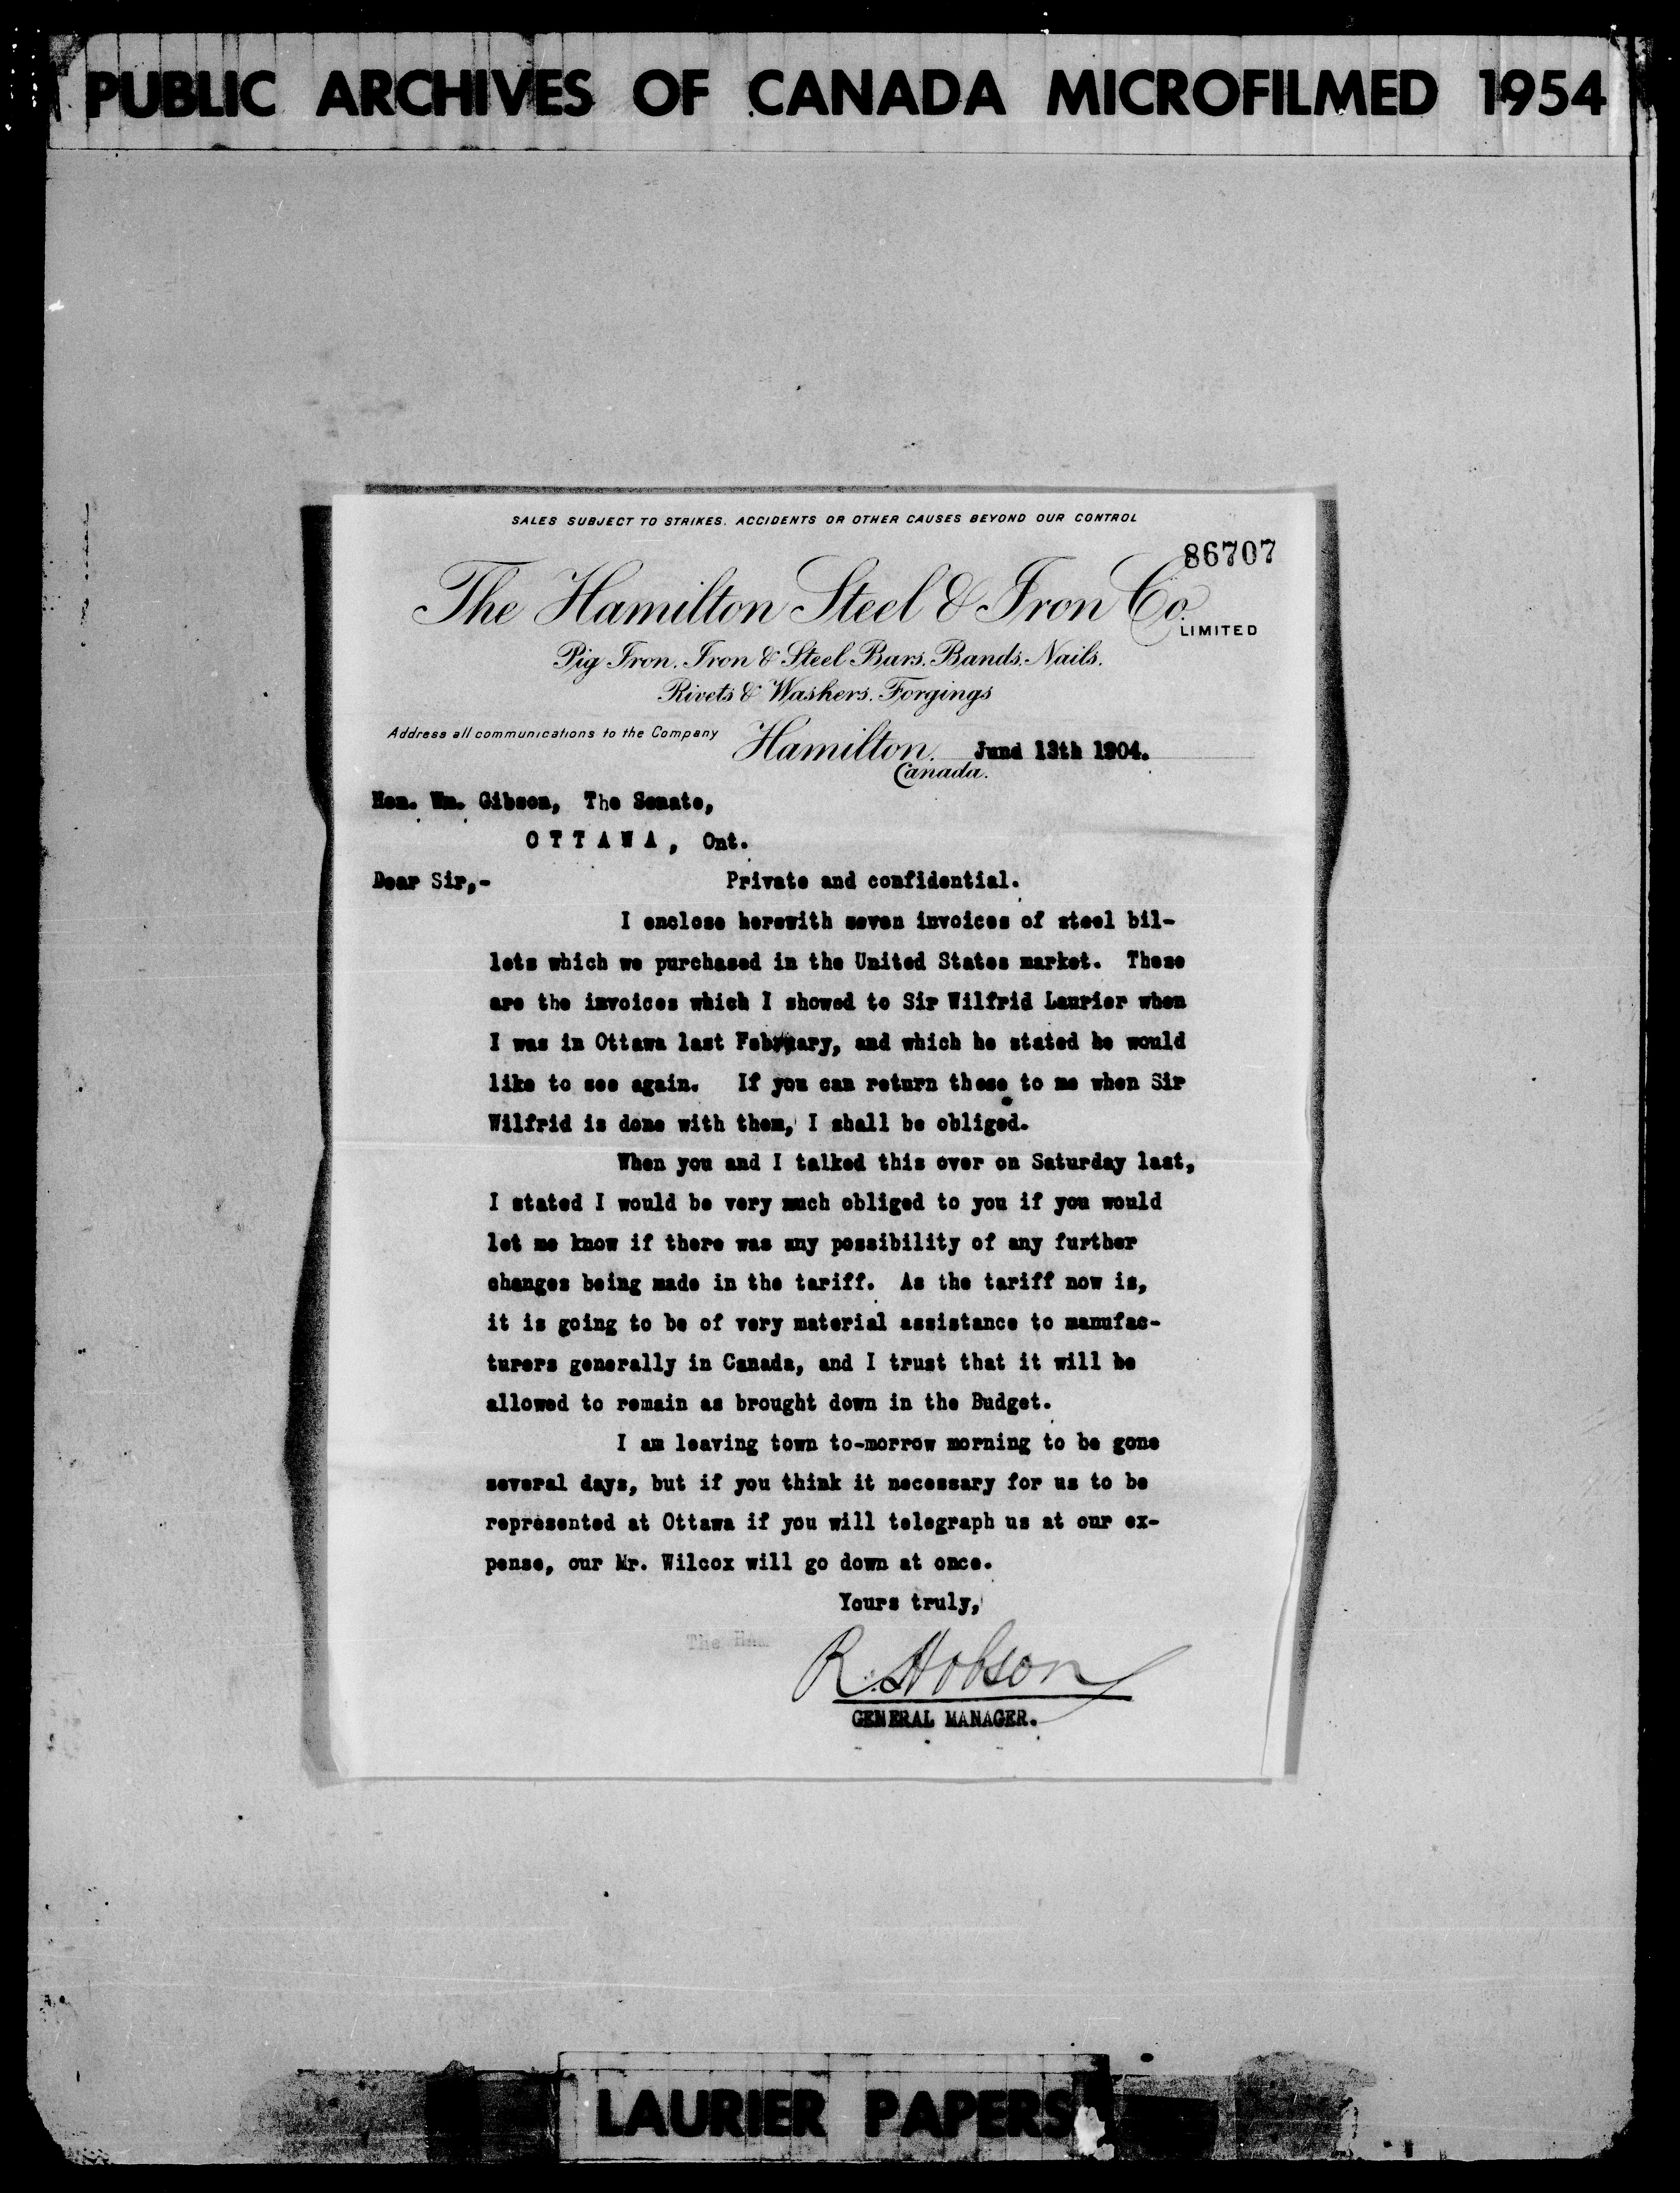 PUBLIC ARCHIVES OF CANADA MICROFILMED 1954
SALES SUBJECT TO STRIKES, ACCIDENTS OR OTHER CAUSES BEYOND OUR CONTROL
86707
The Hamilton Steel & Iron Co.
LIMITED
Pig Iron, Iron & Steel Bars, Bands, Nails,
Rivets & Washers, Forgings
Address all communications to the Company
Hamilton, Jund 13th 1904.
Canada.
Hon. Wm. Gibson, The Senate,
OTTAWA, Ont.
Dear Sir,- Private and confidential.
I enclose herewith seven invoices of steel bil-
lets which we purchased in the United States market. These
are the invoices which I showed to Sir Wilfrid Laurier when
I was in Ottawa last February, and which he stated he would
like to see again. If you can return these to me when Sir
Wilfrid is done with them, I shall be obliged.
When you and I talked this over on Saturday last,
I stated I would be very much obliged to you if you would
let me know if there was any possibility of any further
changes being made in the tariff. As the tariff now is,
it is going to be of very material assistance to manufac-
turers generally in Canada, and I trust that it will be
allowed to remain as brought down in the Budget.
I am leaving town to-morrow morning to be gone
several days, but if you think it necessary for us to be
represented at Ottawa if you will telegraph us at our ex-
pense, our Mr. Wilcox will go down at once.
Yours truly,
The
R. Hobson
GENERAL MANAGER.
LAURIER PAPERS